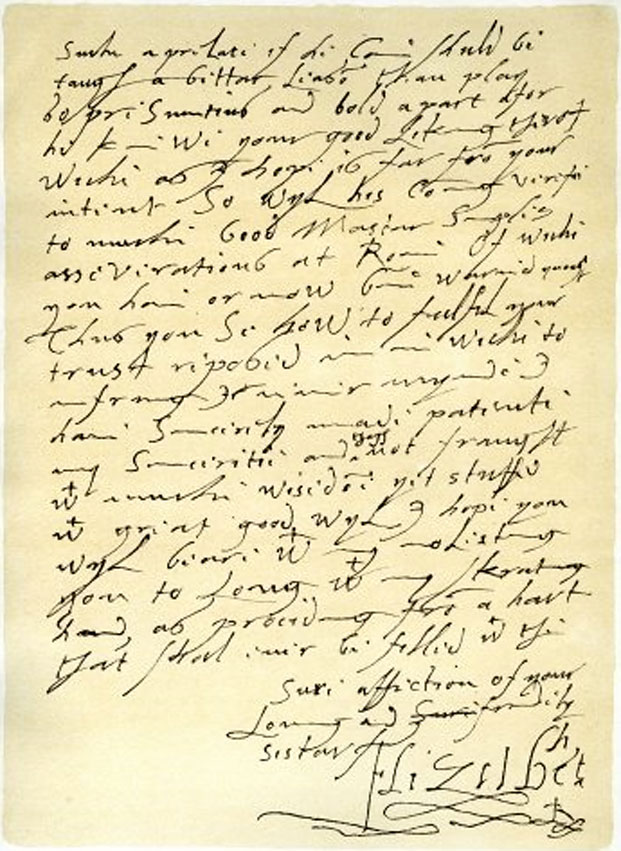 Suche a prelate if he come shuld be
taught a bettar lesson than play
so presumtius and bold a part afor
he knewe your good liking therof
wiche as I hope is far from your
intent So wyl his coming verefie
to muche Good Mastar Simples
asseverations at Rome of wiche
you have or now bene warned ynough
Thus you se how to fulfil your
trust reposed in me wiche to
infring I never mynde I
have Sincerely made patente
my Sinceritie and thogh not fraught
wt muche wisedome yet stuffed
wt great good wyl I hope you
wyl beare wt my molesting
you to long wt my skrating
hand, as proceding from a hart
that shal ever be filled wt the
Sure affection of your
Loving and frendely
Sistar
Elizabeth R